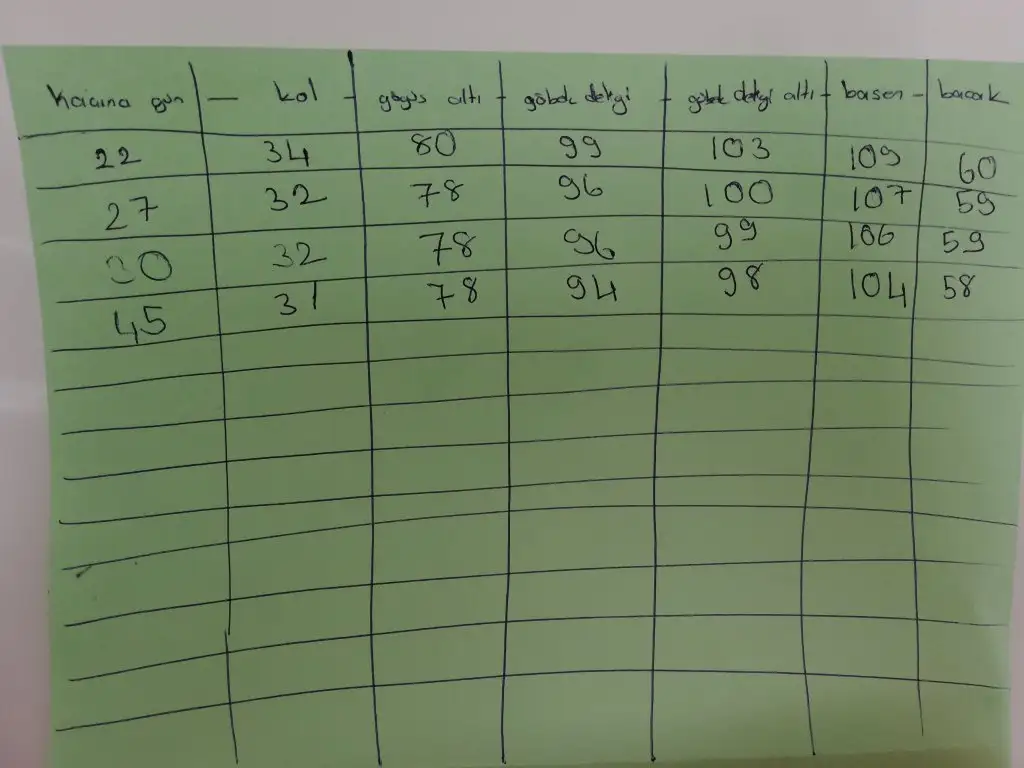 Kaçıncı gün — kol - göğüs altı - göbek deliği - göbek deliği altı - basen - bacak
22 34 80 99 103 109 60
27 32 78 96 100 107 59
30 32 78 96 99 106 59
45 31 78 94 98 104 58